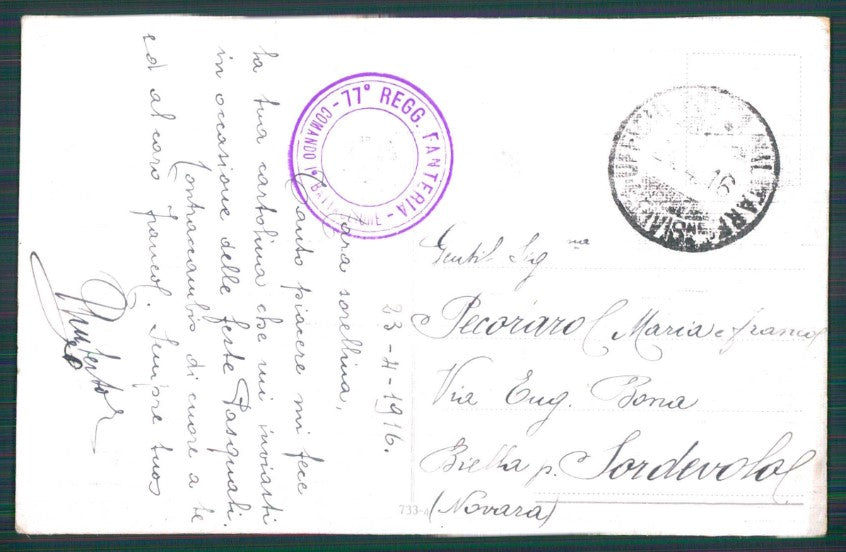 23-4-1916.
Cara sorellina,
Tanto piacere mi fece
la tua cartolina che mi inviasti
in occasione delle feste Pasquali.
Contraccambio di cuore a te
ed al caro Franco. Sempre tuo
77° REGG. FANTERIA - COMANDO I° BATTAGLIONE -
Gentil Sig.na
Pecoraro Maria e Franco
Via Eug. Bona
Biella p. Sordevolo
(Novara)
733-4